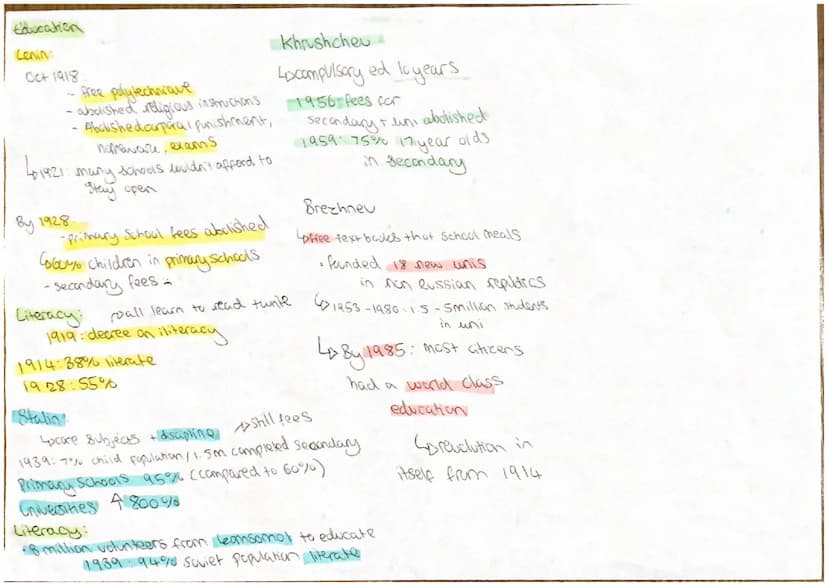 Education
Lenin:
Oct 1918
- free polytechnique
- abolished religious instructions
- Abolished corporal punishment,
homework, exams
↳ 1921: many schools couldn't afford to
stay open
By 1928
- primary school fees abolished
↳ 60% children in primary schools
- secondary fees
Literacy: → all learn to read + write
1919: decree on iliteracy
1914: 38% literate
1928: 55%
Stalin:
↳ core subjects + discipline → still fees
1939: 7% child population / 1.5m completed secondary
Primary Schools 95% (compared to 60%)
Universities ↑ 800%
Literacy:
8 million volunteers from komsomol to educate
1939: 94% soviet population literate
Khrushchev
↳ compulsory ed 10 years
1956: fees for
secondary + uni abolished
1959: 75% 17 year olds
in secondary
Brezhnev
↳ free textbooks + hot school meals
• founded 18 new unis
in non Russian replbics
↳ 1953-1980: 1.5 - 5 million students
in uni
↳ By 1985: most citizens
had a world class
education
↳ revolution in
itself from 1914